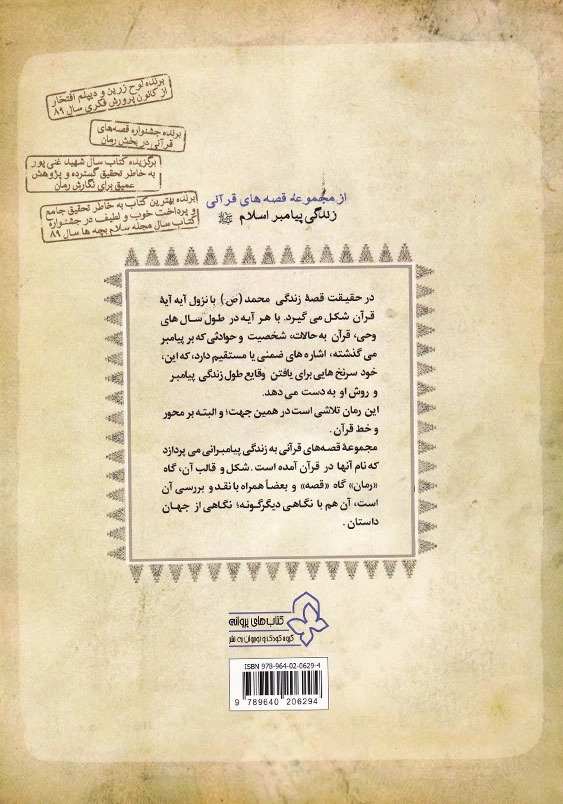 برنده لوح زرین و دیپلم افتخار
از کانون پرورش فکری سال ۸۹
برنده جشنواره قصه‌های
قرآنی در بخش رمان
برگزیده کتاب سال شهید غنی پور
به خاطر تحقیق گسترده و پژوهش
عمیق برای نگارش رمان
برنده بهترین کتاب به خاطر تحقیق جامع
و پرداخت خوب و لطیف در جشنواره
کتاب سال مجله سلام بچه ها سال ۸۹
از مجموعه قصه های قرآنی
زندگی پیامبر اسلام ﷺ
در حقیقت قصهٔ زندگی محمد (ص) با نزول آیه آیهٔ
قرآن شکل می گیرد. با هر آیه در طول سال های
وحی، قرآن به حالات، شخصیت و حوادثی که بر پیامبر
می گذشته، اشاره های ضمنی یا مستقیم دارد، که این،
خود سرنخ هایی برای یافتن وقایع طول زندگی پیامبر
و روش او به دست می دهد.
این رمان تلاشی است در همین جهت؛ و البته بر محور
و خط قرآن.
مجموعهٔ قصه‌های قرآنی به زندگی پیامبرانی می پردازد
که نام آنها در قرآن آمده است. شکل و قالب آن، گاه
«رمان» گاه «قصه» و بعضاً همراه با نقد و بررسی آن
است، آن هم با نگاهی دیگرگونه؛ نگاهی از جهان
داستان.
کتاب‌های پروانه
گروه کودک و نوجوان به نشر
ISBN 978-964-02-0629-4
9 789640 206294